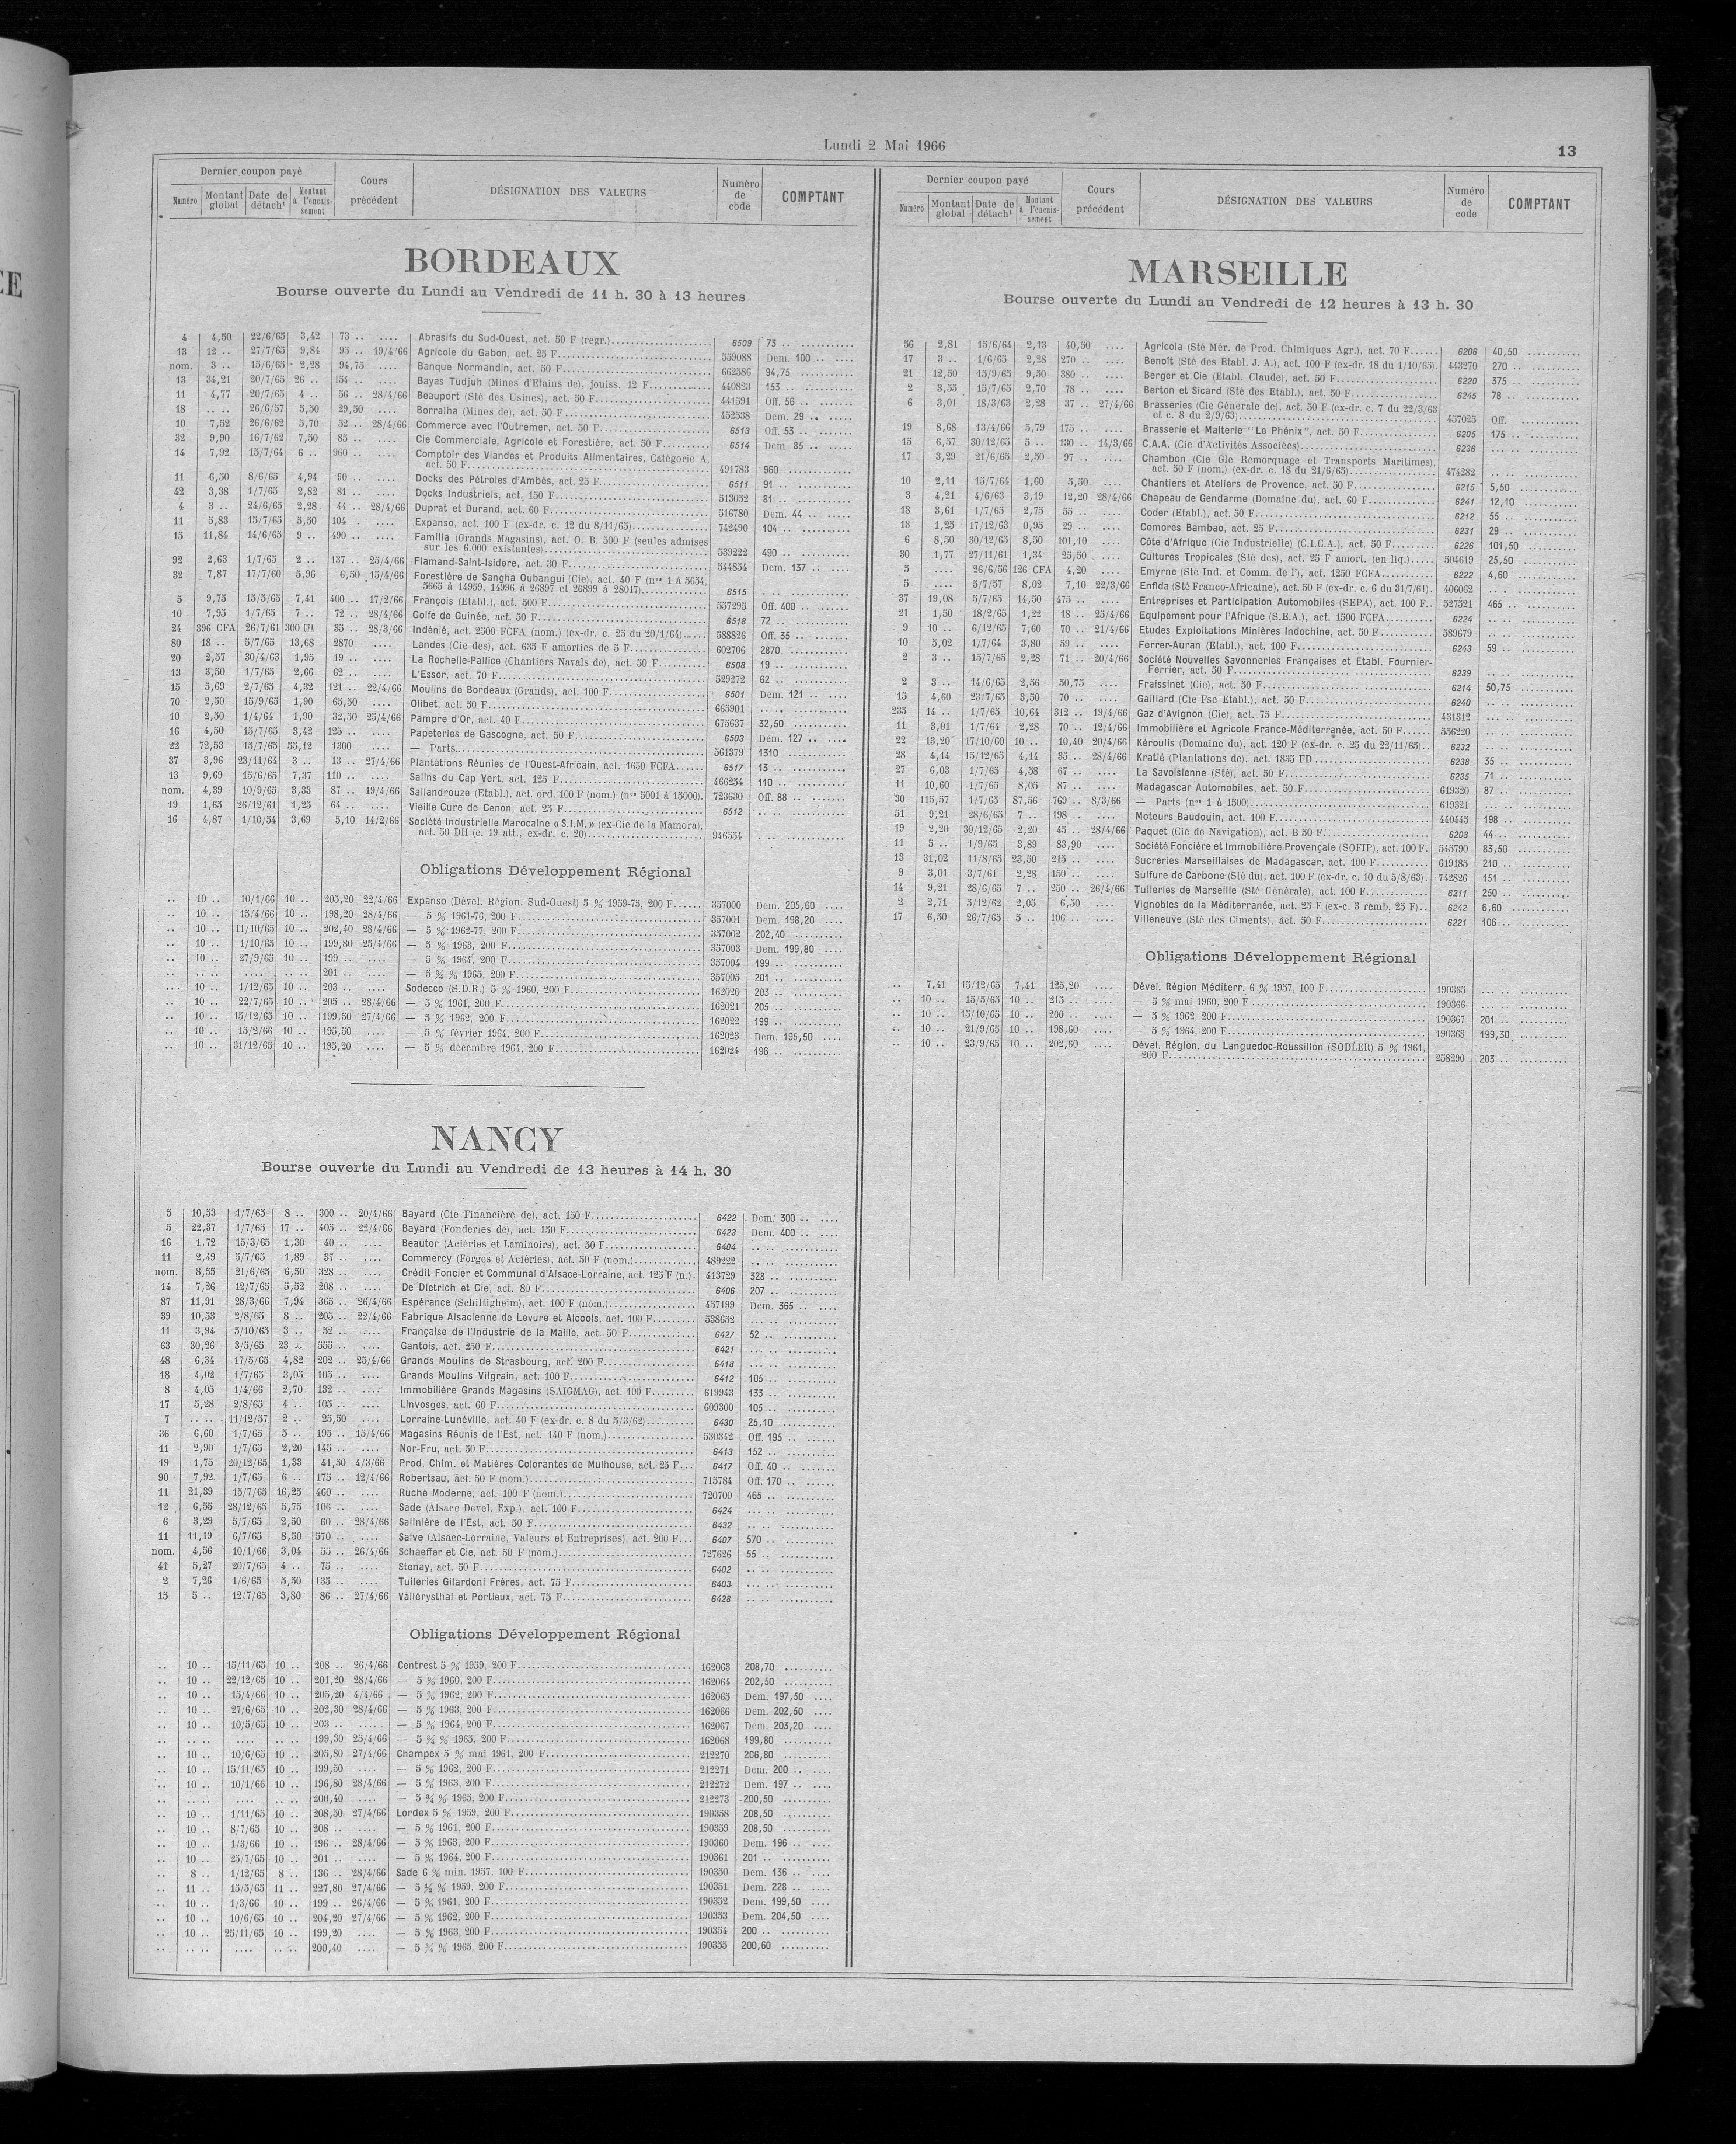 Lundi 2 Mai 1966
13
Dernier coupon payé
Numéro Montant global Date de détacht Montant à l'encaissement
Cours précédent
DÉSIGNATION DES VALEURS
Numéro de code
COMPTANT
BORDEAUX
Bourse ouverte du Lundi au Vendredi de 11 h. 30 à 13 heures
4 4,50 22/6/65 3,42 73 .. .... Abrasifs du Sud-Ouest, act. 50 F (regr.) 6509 73 ..
13 12 .. 27/7/65 9,84 95 .. 19/4/66 Agricole du Gabon, act. 25 F 559088 Dem. 100 ..
nom. 3 .. 15/6/65 2,28 94,75 .... Banque Normandin, act. 50 F 662586 94,75
13 34,21 20/7/65 26 .. 154 .. .... Bayas Tudjuh (Mines d'Etains de), jouiss. 12 F 440823 153 ..
11 4,77 20/7/65 4 .. 56 .. 28/4/66 Beauport (Sté des Usines), act. 50 F 441591 Off. 56 ..
18 .. .. 26/6/57 5,50 29,50 .... Borralha (Mines de), act. 50 F 452538 Dem. 29 ..
10 7,52 26/6/62 5,70 52 .. 28/4/66 Commerce avec l'Outremer, act. 50 F 6513 Off. 53 ..
32 9,90 16/7/62 7,50 85 .. .... Cie Commerciale, Agricole et Forestière, act. 50 F 6514 Dem 85 ..
14 7,92 15/7/64 6 .. 960 .. .... Comptoir des Viandes et Produits Alimentaires, Catégorie A,
act. 50 F 491783 960
11 6,50 8/6/65 4,94 90 .. .... Docks des Pétroles d'Ambès, act. 25 F 6511 91 ..
42 3,38 1/7/65 2,82 81 .. .... Docks Industriels, act. 150 F 513052 81 ..
4 3 .. 24/6/65 2,28 44 .. 28/4/66 Duprat et Durand, act. 60 F 516780 Dem. 44 ..
11 5,83 15/7/65 5,50 104 . .... Expanso, act. 100 F (ex-dr. c. 12 du 8/11/65) 742490 104 ..
15 11,84 14/6/65 9 .. 490 .. .... Familia (Grands Magasins), act. O. B. 500 F (seules admises
sur les 6.000 existantes) 539222 490 ..
92 2,63 1/7/65 2 .. 137 .. 25/4/66 Flamand-Saint-Isidore, act. 30 F 544854 Dem. 137 ..
32 7,87 17/7/60 5,96 6,50 15/4/66 Forestière de Sangha Oubangui (Cie), act. 40 F (nos 1 à 5654,
5665 à 14959, 14996 à 26897 et 26899 à 28017) 6515
5 9,75 15/5/65 7,41 400 .. 17/2/66 François (Etabl.), act. 500 F 557295 Off. 400 ..
10 7,95 1/7/65 7 .. 72 .. 28/4/66 Golfe de Guinée, act. 50 F 6518 72 ..
24 396 CFA 26/7/61 300 CFA 35 .. 28/3/66 Indénié, act. 2500 FCFA (nom.) (ex-dr. c. 25 du 20/1/64) 588826 Off. 35 ..
80 18 .. 5/7/65 13,68 2870 .... Landes (Cie des), act. 635 F amorties de 5 F 602706 2870
20 2,57 30/4/63 1,95 19 .. .... La Rochelle-Pallice (Chantiers Navals de), act. 50 F 6508 19 ..
13 3,50 1/7/65 2,66 62 .. .... L'Essor, act. 70 F 529272 62 ..
15 5,69 2/7/65 4,32 121 .. 22/4/66 Moulins de Bordeaux (Grands), act. 100 F 6501 Dem. 121 ..
70 2,50 15/9/65 1,90 65,50 .... Olibet, act. 50 F 665901
10 2,50 1/4/64 1,90 32,50 25/4/66 Pampre d'Or, act. 40 F 675637 32,50
16 4,50 15/7/65 3,42 125 .. .... Papeteries de Gascogne, act. 50 F 6503 Dem. 127 ..
22 72,53 15/7/65 55,12 1300 .... — Parts 561379 1310
37 3,96 23/11/64 3 .. 13 .. 27/4/66 Plantations Réunies de l'Ouest-Africain, act. 1650 FCFA 6517 13 ..
13 9,69 15/6/65 7,37 110 .. .... Salins du Cap Vert, act. 125 F 466254 110 ..
nom. 4,39 10/9/65 3,33 87 .. 19/4/66 Sallandrouze (Etabl.), act. ord. 100 F (nom.) (nos 5001 à 15000) 723630 Off. 88 ..
19 1,65 26/12/61 1,25 64 .. .... Vieille Cure de Cenon, act. 25 F 6512
16 4,87 1/10/54 3,69 5,10 14/2/66 Société Industrielle Marocaine « S.I.M. » (ex-Cie de la Mamora),
act. 50 DH (c. 19 att., ex-dr. c. 20) 946554
Obligations Développement Régional
.. 10 .. 10/1/66 10 .. 205,20 22/4/66 Expanso (Dével. Région. Sud-Ouest) 5 % 1959-75, 200 F 357000 Dem. 205,60
.. 10 .. 15/4/66 10 .. 198,20 28/4/66 — 5 % 1961-76, 200 F 357001 Dem. 198,20
.. 10 .. 11/10/65 10 .. 202,40 28/4/66 — 5 % 1962-77, 200 F 357002 202,40
.. 10 .. 1/10/65 10 .. 199,80 25/4/66 — 5 % 1963, 200 F 357003 Dem. 199,80
.. 10 .. 27/9/65 10 .. 199 .. .... — 5 % 1964, 200 F 357004 199 ..
.. .. .. .... .. .. 201 .. .... — 5 ¾ % 1965, 200 F 357005 201 ..
.. 10 .. 1/12/65 10 .. 203 .. .... Sodecco (S.D.R.) 5 % 1960, 200 F 162020 203 ..
.. 10 .. 22/7/65 10 .. 205 .. 28/4/66 — 5 % 1961, 200 F 162021 205 ..
.. 10 .. 15/12/65 10 .. 199,50 27/4/66 — 5 % 1962, 200 F 162022 199 ..
.. 10 .. 15/2/66 10 .. 195,50 .... — 5 % février 1964, 200 F 162023 Dem. 195,50
.. 10 .. 31/12/65 10 .. 195,20 .... — 5 % décembre 1964, 200 F 162024 196 ..
NANCY
Bourse ouverte du Lundi au Vendredi de 13 heures à 14 h. 30
5 10,53 1/7/65 8 .. 300 .. 20/4/66 Bayard (Cie Financière de), act. 150 F 6422 Dem. 300 ..
5 22,37 1/7/65 17 .. 405 .. 22/4/66 Bayard (Fonderies de), act. 150 F 6423 Dem. 400 ..
16 1,72 15/3/65 1,30 40 .. .... Beautor (Aciéries et Laminoirs), act. 50 F 6404
11 2,49 5/7/65 1,89 37 .. .... Commercy (Forges et Aciéries), act. 50 F (nom.) 489222
nom. 8,55 21/6/65 6,50 328 .. .... Crédit Foncier et Communal d'Alsace-Lorraine, act. 125 F (n.) 413729 328 ..
14 7,26 12/7/65 5,52 208 .. .... De Dietrich et Cie, act. 80 F 6406 207 ..
87 11,91 28/3/66 7,94 365 .. 26/4/66 Espérance (Schiltigheim), act. 100 F (nom.) 457199 Dem. 365 ..
39 10,53 2/8/65 8 .. 205 .. 22/4/66 Fabrique Alsacienne de Levure et Alcools, act. 100 F 538652
11 3,94 5/10/65 3 .. 52 .. .... Française de l'Industrie de la Maille, act. 50 F 6427 52 ..
63 30,26 3/5/65 23 .. 555 .. .... Gantois, act. 250 F 6421
48 6,34 17/5/65 4,82 202 .. 25/4/66 Grands Moulins de Strasbourg, act. 200 F 6418
18 4,02 1/7/65 3,05 105 .. .... Grands Moulins Vilgrain, act. 100 F 6412 105 ..
8 4,05 1/4/66 2,70 132 .. .... Immobilière Grands Magasins (SAIGMAG), act. 100 F 619943 133 ..
17 5,28 2/8/65 4 .. 105 .. .... Linvosges, act. 60 F 609300 105 ..
7 .. .. 11/12/57 2 .. 25,50 .... Lorraine-Lunéville, act. 40 F (ex-dr. c. 8 du 5/3/62) 6430 25,10
36 6,60 1/7/65 5 .. 195 .. 15/4/66 Magasins Réunis de l'Est, act. 140 F (nom.) 530342 Off. 195 ..
11 2,90 1/7/65 2,20 145 .. .... Nor-Fru, act. 50 F 6413 152 ..
19 1,75 20/12/65 1,33 41,50 4/3/66 Prod. Chim. et Matières Colorantes de Mulhouse, act. 25 F 6417 Off. 40 ..
90 7,92 1/7/65 6 .. 175 .. 12/4/66 Robertsau, act. 50 F (nom.) 715784 Off. 170 ..
11 21,39 15/7/65 16,25 460 .. .... Ruche Moderne, act. 100 F (nom.) 720700 465 ..
12 6,55 28/12/65 5,75 106 .. .... Sade (Alsace Dével. Exp.), act. 100 F 6424
6 3,29 5/7/65 2,50 60 .. 28/4/66 Salinière de l'Est, act. 50 F 6432
11 11,19 6/7/65 8,50 570 .. .... Salve (Alsace-Lorraine, Valeurs et Entreprises), act. 200 F 6407 570 ..
nom. 4,56 10/1/66 3,04 55 .. 26/4/66 Schaeffer et Cie, act. 50 F (nom.) 727626 55 ..
41 5,27 20/7/65 4 .. 75 .. .... Stenay, act. 50 F 6402
2 7,26 1/6/65 5,50 135 .. .... Tuileries Gilardoni Frères, act. 75 F 6403
15 5 .. 12/7/65 3,80 86 .. 27/4/66 Vallérysthal et Portieux, act. 75 F 6428
Obligations Développement Régional
.. 10 .. 15/11/65 10 .. 208 .. 26/4/66 Centrest 5 % 1959, 200 F 162063 208,70
.. 10 .. 22/12/65 10 .. 201,20 28/4/66 — 5 % 1960, 200 F 162064 202,50
.. 10 .. 15/4/66 10 .. 205,20 4/4/66 — 5 % 1962, 200 F 162065 Dem. 197,50
.. 10 .. 27/6/65 10 .. 202,30 28/4/66 — 5 % 1963, 200 F 162066 Dem. 202,50
.. 10 .. 10/5/65 10 .. 203 .. .... — 5 % 1964, 200 F 162067 Dem. 203,20
.. .. .. .... .. .. 199,30 25/4/66 — 5 ¾ % 1965, 200 F 162068 199,80
.. 10 .. 10/6/65 10 .. 205,80 27/4/66 Champex 5 % mai 1961, 200 F 212270 206,80
.. 10 .. 15/11/65 10 .. 199,50 .... — 5 % 1962, 200 F 212271 Dem. 200 ..
.. 10 .. 10/1/66 10 .. 196,80 28/4/66 — 5 % 1963, 200 F 212272 Dem. 197 ..
.. .. .. .... .. .. 200,40 .... — 5 ¾ % 1965, 200 F 212273 200,50
.. 10 .. 1/11/65 10 .. 208,50 27/4/66 Lordex 5 % 1959, 200 F 190358 208,50
.. 10 .. 8/7/65 10 .. 208 .. .... — 5 % 1961, 200 F 190359 208,50
.. 10 .. 1/3/66 10 .. 196 .. 28/4/66 — 5 % 1963, 200 F 190360 Dem. 196 ..
.. 10 .. 25/7/65 10 .. 201 .. .... — 5 % 1964, 200 F 190361 201 ..
.. 8 .. 1/12/65 8 .. 136 .. 28/4/66 Sade 6 % min. 1957, 100 F 190350 Dem. 136 ..
.. 11 .. 15/5/65 11 .. 227,80 27/4/66 — 5 ½ % 1959, 200 F 190351 Dem. 228 ..
.. 10 .. 1/3/66 10 .. 199 .. 26/4/66 — 5 % 1961, 200 F 190352 Dem. 199,50
.. 10 .. 10/6/65 10 .. 204,20 27/4/66 — 5 % 1962, 200 F 190353 Dem. 204,50
.. 10 .. 25/11/65 10 .. 199,20 .... — 5 % 1963, 200 F 190354 200 ..
.. .. .. .... .. .. 200,40 .... — 5 ¾ % 1965, 200 F 190355 200,60
Dernier coupon payé
Numéro Montant global Date de détacht Montant à l'encaissement
Cours précédent
DÉSIGNATION DES VALEURS
Numéro de code
COMPTANT
MARSEILLE
Bourse ouverte du Lundi au Vendredi de 12 heures à 13 h. 30
56 2,81 15/6/64 2,13 40,50 .... Agricola (Sté Mér. de Prod. Chimiques Agr.), act. 70 F 6206 40,50
17 3 .. 1/6/65 2,28 270 .. .... Benoît (Sté des Etabl. J. A.), act. 100 F (ex-dr. 18 du 1/10/65) 443270 270 ..
21 12,50 15/9/65 9,50 380 .. .... Berger et Cie (Etabl. Claude), act. 50 F 6220 375 ..
2 3,55 15/7/65 2,70 78 .. .... Berton et Sicard (Sté des Etabl.), act. 50 F 6245 78 ..
6 3,01 18/3/63 2,28 37 .. 27/4/66 Brasseries (Cie Générale de), act. 50 F (ex-dr. c. 7 du 22/3/63
et c. 8 du 2/9/63) 457025 Off.
19 8,68 13/4/66 5,79 175 .. .... Brasserie et Malterie "Le Phénix", act. 50 F 6205 175 ..
15 6,57 30/12/65 5 .. 130 .. 14/3/66 C.A.A. (Cie d'Activités Associées) 6236
17 3,29 21/6/65 2,50 97 .. .... Chambon (Cie Gle Remorquage et Transports Maritimes),
act. 50 F (nom.) (ex-dr. c. 18 du 21/6/65) 474282
10 2,11 15/7/64 1,60 5,50 .... Chantiers et Ateliers de Provence, act. 50 F 6215 5,50
3 4,21 4/6/63 3,19 12,20 28/4/66 Chapeau de Gendarme (Domaine du), act. 60 F 6241 12,10
18 3,61 1/7/65 2,75 55 .. .... Coder (Etabl.), act. 50 F 6212 55 ..
13 1,25 17/12/63 0,95 29 .. .... Comores Bambao, act. 25 F 6231 29 ..
6 8,50 30/12/65 8,50 101,10 .... Côte d'Afrique (Cie Industrielle) (C.I.C.A.), act. 50 F 6226 101,50
30 1,77 27/11/61 1,34 25,50 .... Cultures Tropicales (Sté des), act. 25 F amort. (en liq.) 504619 25,50
5 .... 26/6/56 126 CFA 4,20 .... Emyrne (Sté Ind. et Comm. de l'), act. 1250 FCFA 6222 4,60
5 .... 5/7/57 8,02 7,10 22/3/66 Enfida (Sté Franco-Africaine), act. 50 F (ex-dr. c. 6 du 31/7/61) 406062
37 19,08 5/7/65 14,50 475 .. .... Entreprises et Participation Automobiles (SEPA), act. 100 F. 527521 465 ..
21 1,50 18/2/65 1,22 18 .. 25/4/66 Equipement pour l'Afrique (S.E.A.), act. 1500 FCFA 6224
9 10 .. 6/12/65 7,60 70 .. 21/4/66 Etudes Exploitations Minières Indochine, act. 50 F 589679
10 5,02 1/7/64 3,80 59 .. .... Ferrer-Auran (Etabl.), act. 100 F 6243 59 ..
2 3 .. 15/7/65 2,28 71 .. 20/4/66 Société Nouvelles Savonneries Françaises et Etabl. Fournier-
Ferrier, act. 50 F 6239
2 3 .. 14/6/65 2,56 50,75 .... Fraissinet (Cie), act. 50 F 6214 50,75
15 4,60 23/7/65 3,50 70 .. .... Gaillard (Cie Fse Etabl.), act. 50 F 6240
235 14 .. 1/7/65 10,64 312 .. 19/4/66 Gaz d'Avignon (Cie), act. 75 F 431312
11 3,01 1/7/64 2,28 70 .. 12/4/66 Immobilière et Agricole France-Méditerranée, act. 50 F 556220
22 13,20 17/10/60 10 .. 10,40 20/4/66 Kéroulis (Domaine du), act. 120 F (ex-dr. c. 25 du 22/11/65) 6232
28 4,14 15/12/65 4,14 35 .. 28/4/66 Kratié (Plantations de), act. 1835 FD 6238 35 ..
27 6,03 1/7/65 4,58 67 .. .... La Savoisienne (Sté), act. 50 F 6235 71 ..
11 10,60 1/7/65 8,05 87 .. .... Madagascar Automobiles, act. 50 F 619320 87 ..
30 115,57 1/7/65 87,56 769 .. 8/3/66 — Parts (nos 1 à 1500) 619321
51 9,21 28/6/65 7 .. 198 .. .... Moteurs Baudouin, act. 100 F 440445 198 ..
19 2,20 30/12/65 2,20 45 .. 28/4/66 Paquet (Cie de Navigation), act. B 50 F 6208 44 ..
11 5 .. 1/9/65 3,89 83,90 .... Société Foncière et Immobilière Provençale (SOFIP), act. 100 F. 545790 83,50
13 31,02 11/8/65 23,50 215 .. .... Sucreries Marseillaises de Madagascar, act. 100 F 619185 210 ..
9 3,01 3/7/61 2,28 150 .. .... Sulfure de Carbone (Sté du), act. 100 F (ex-dr. c. 10 du 5/8/63) 742826 151 ..
14 9,21 28/6/65 7 .. 250 .. 26/4/66 Tuileries de Marseille (Sté Générale), act. 100 F 6211 250 ..
2 2,71 5/12/62 2,05 6,50 .... Vignobles de la Méditerranée, act. 25 F (ex-c. 3 remb. 25 F) 6242 6,60
17 6,50 26/7/65 5 .. 106 .. .... Villeneuve (Sté des Ciments), act. 50 F 6221 106 ..
Obligations Développement Régional
.. 7,41 15/12/65 7,41 125,20 .... Dével. Région Méditerr. 6 % 1957, 100 F 190365
.. 10 .. 15/5/65 10 .. 215 .. .... — 5 % mai 1960, 200 F 190366
.. 10 .. 15/10/65 10 .. 200 .. .... — 5 % 1962, 200 F 190367 201 ..
.. 10 .. 21/9/65 10 .. 198,60 .... — 5 % 1964, 200 F 190368 199,30
.. 10 .. 23/9/65 10 .. 202,60 .... Dével. Région. du Languedoc-Roussillon (SODLER) 5 % 1961,
200 F 258290 203 ..